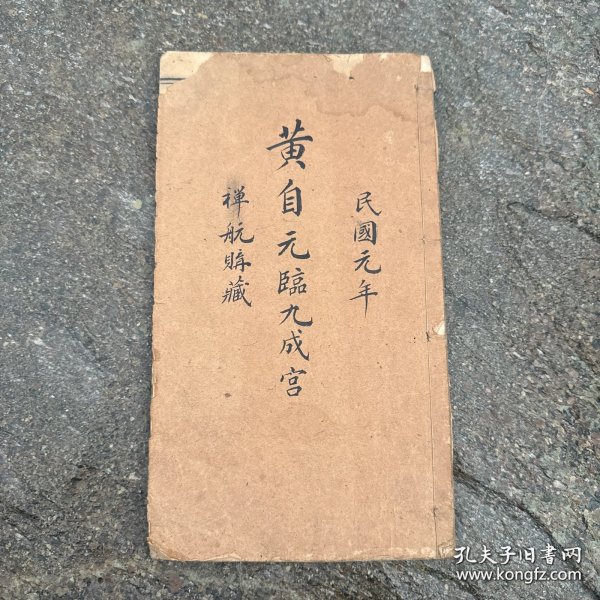 民國元年
黃自元臨九成宮
禪航購藏
孔夫子旧書网
www.kongfz.com